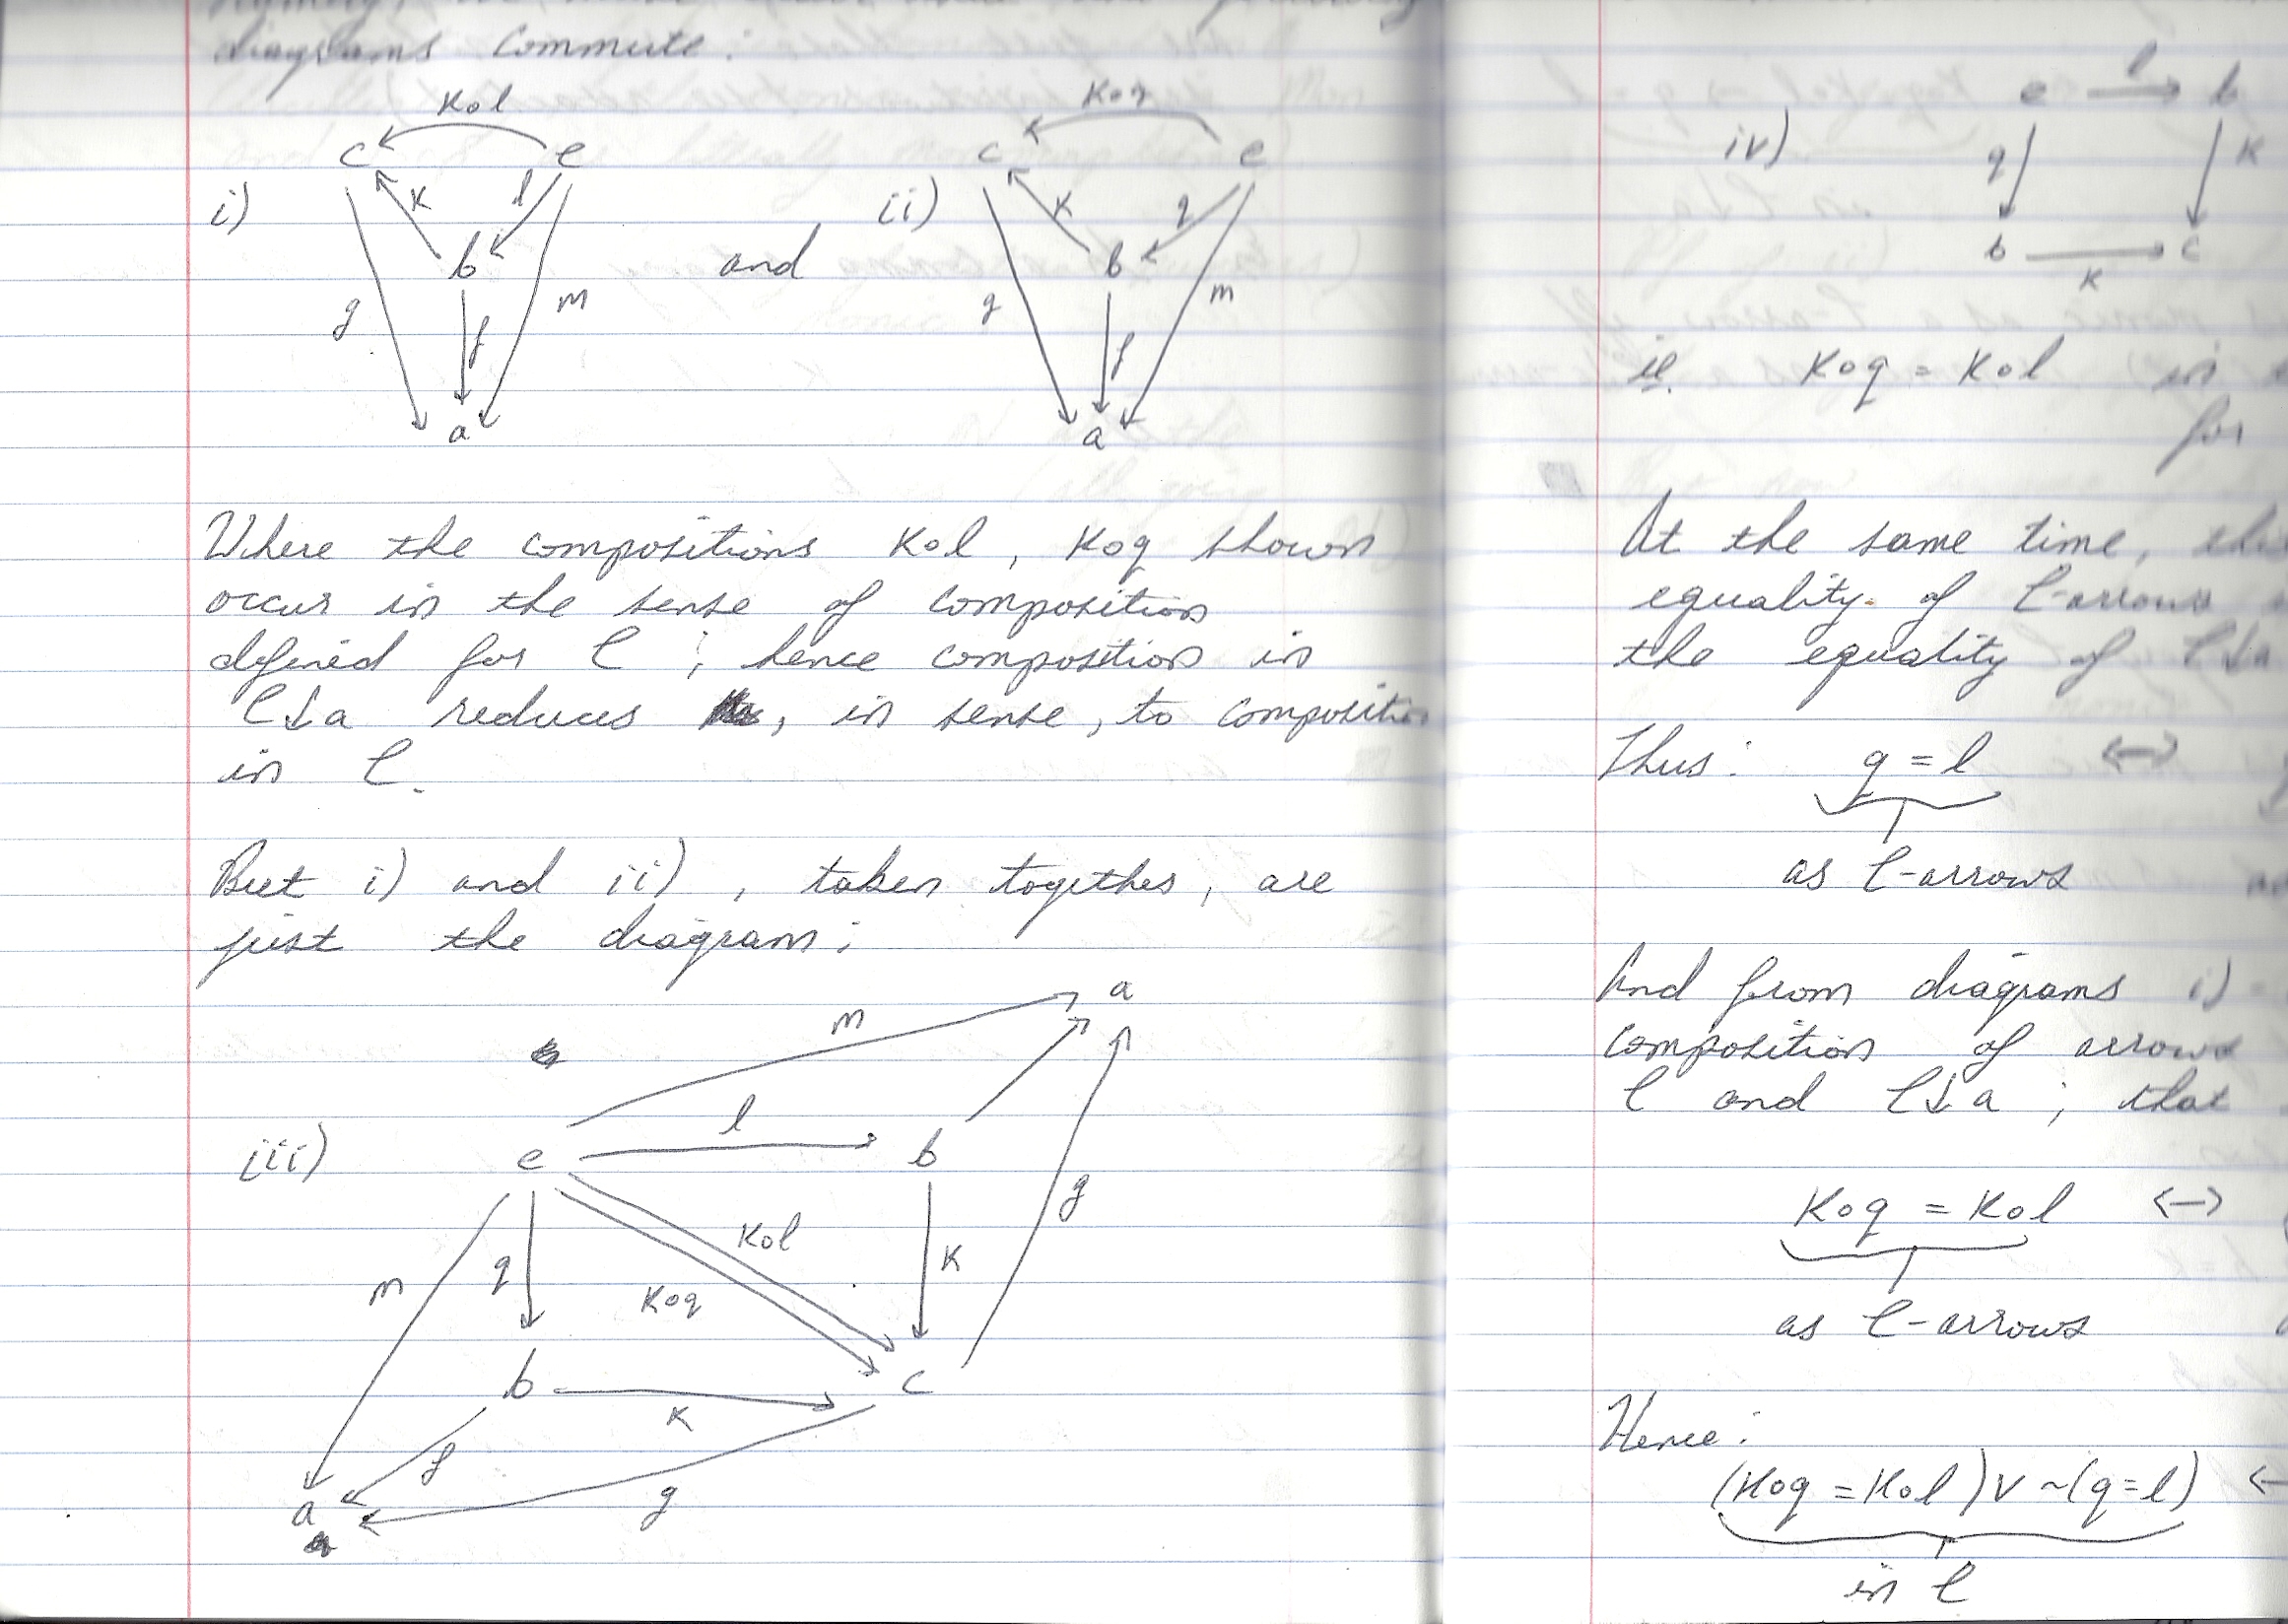 diagrams commute:
i)
Kol
c
e
K
l
b
g
f
m
a
and
ii)
Koq
c
e
K
q
b
g
f
m
a
Where the compositions Kol, Koq shown
occur in the sense of composition
defined for C; hence composition in
C↓a reduces, in sense, to composition
in C.
But i) and ii), taken together, are
just the diagram:
iii)
m
a
e
l
b
m
q
Kol
Koq
K
g
b
K
c
f
g
a
iv)
e
l
b
q
K
b
K
c
ie. Koq = Kol in
for
At the same time,
equality of C-arrows
the equality of C↓a
Thus: q = l <->
as C-arrows
And from diagrams i)
composition of arrows
C and C↓a; that
Koq = Kol <->
as C-arrows
Hence:
(Koq = Kol) v ~(q=l)
in C